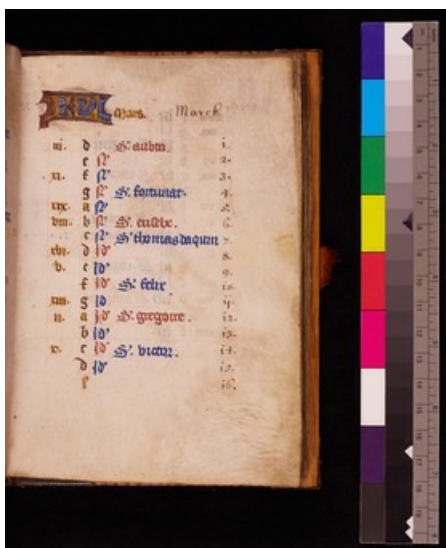 KVL Mars. March
iii. d S. aubin. 1.
e 2.
xi. f 3.
g S. fortunat. 4.
xix. a 5.
viii. b S. eusebe. 6.
c S. thomas daquin 7.
xvi. d id' 8.
v. e id' 9.
f id' S. felix 10.
xiii. g id' 11.
ii. a id' S. gregoire. 12.
b id' 13.
x. c id' S. victor. 14.
d id' 15.
e 16.